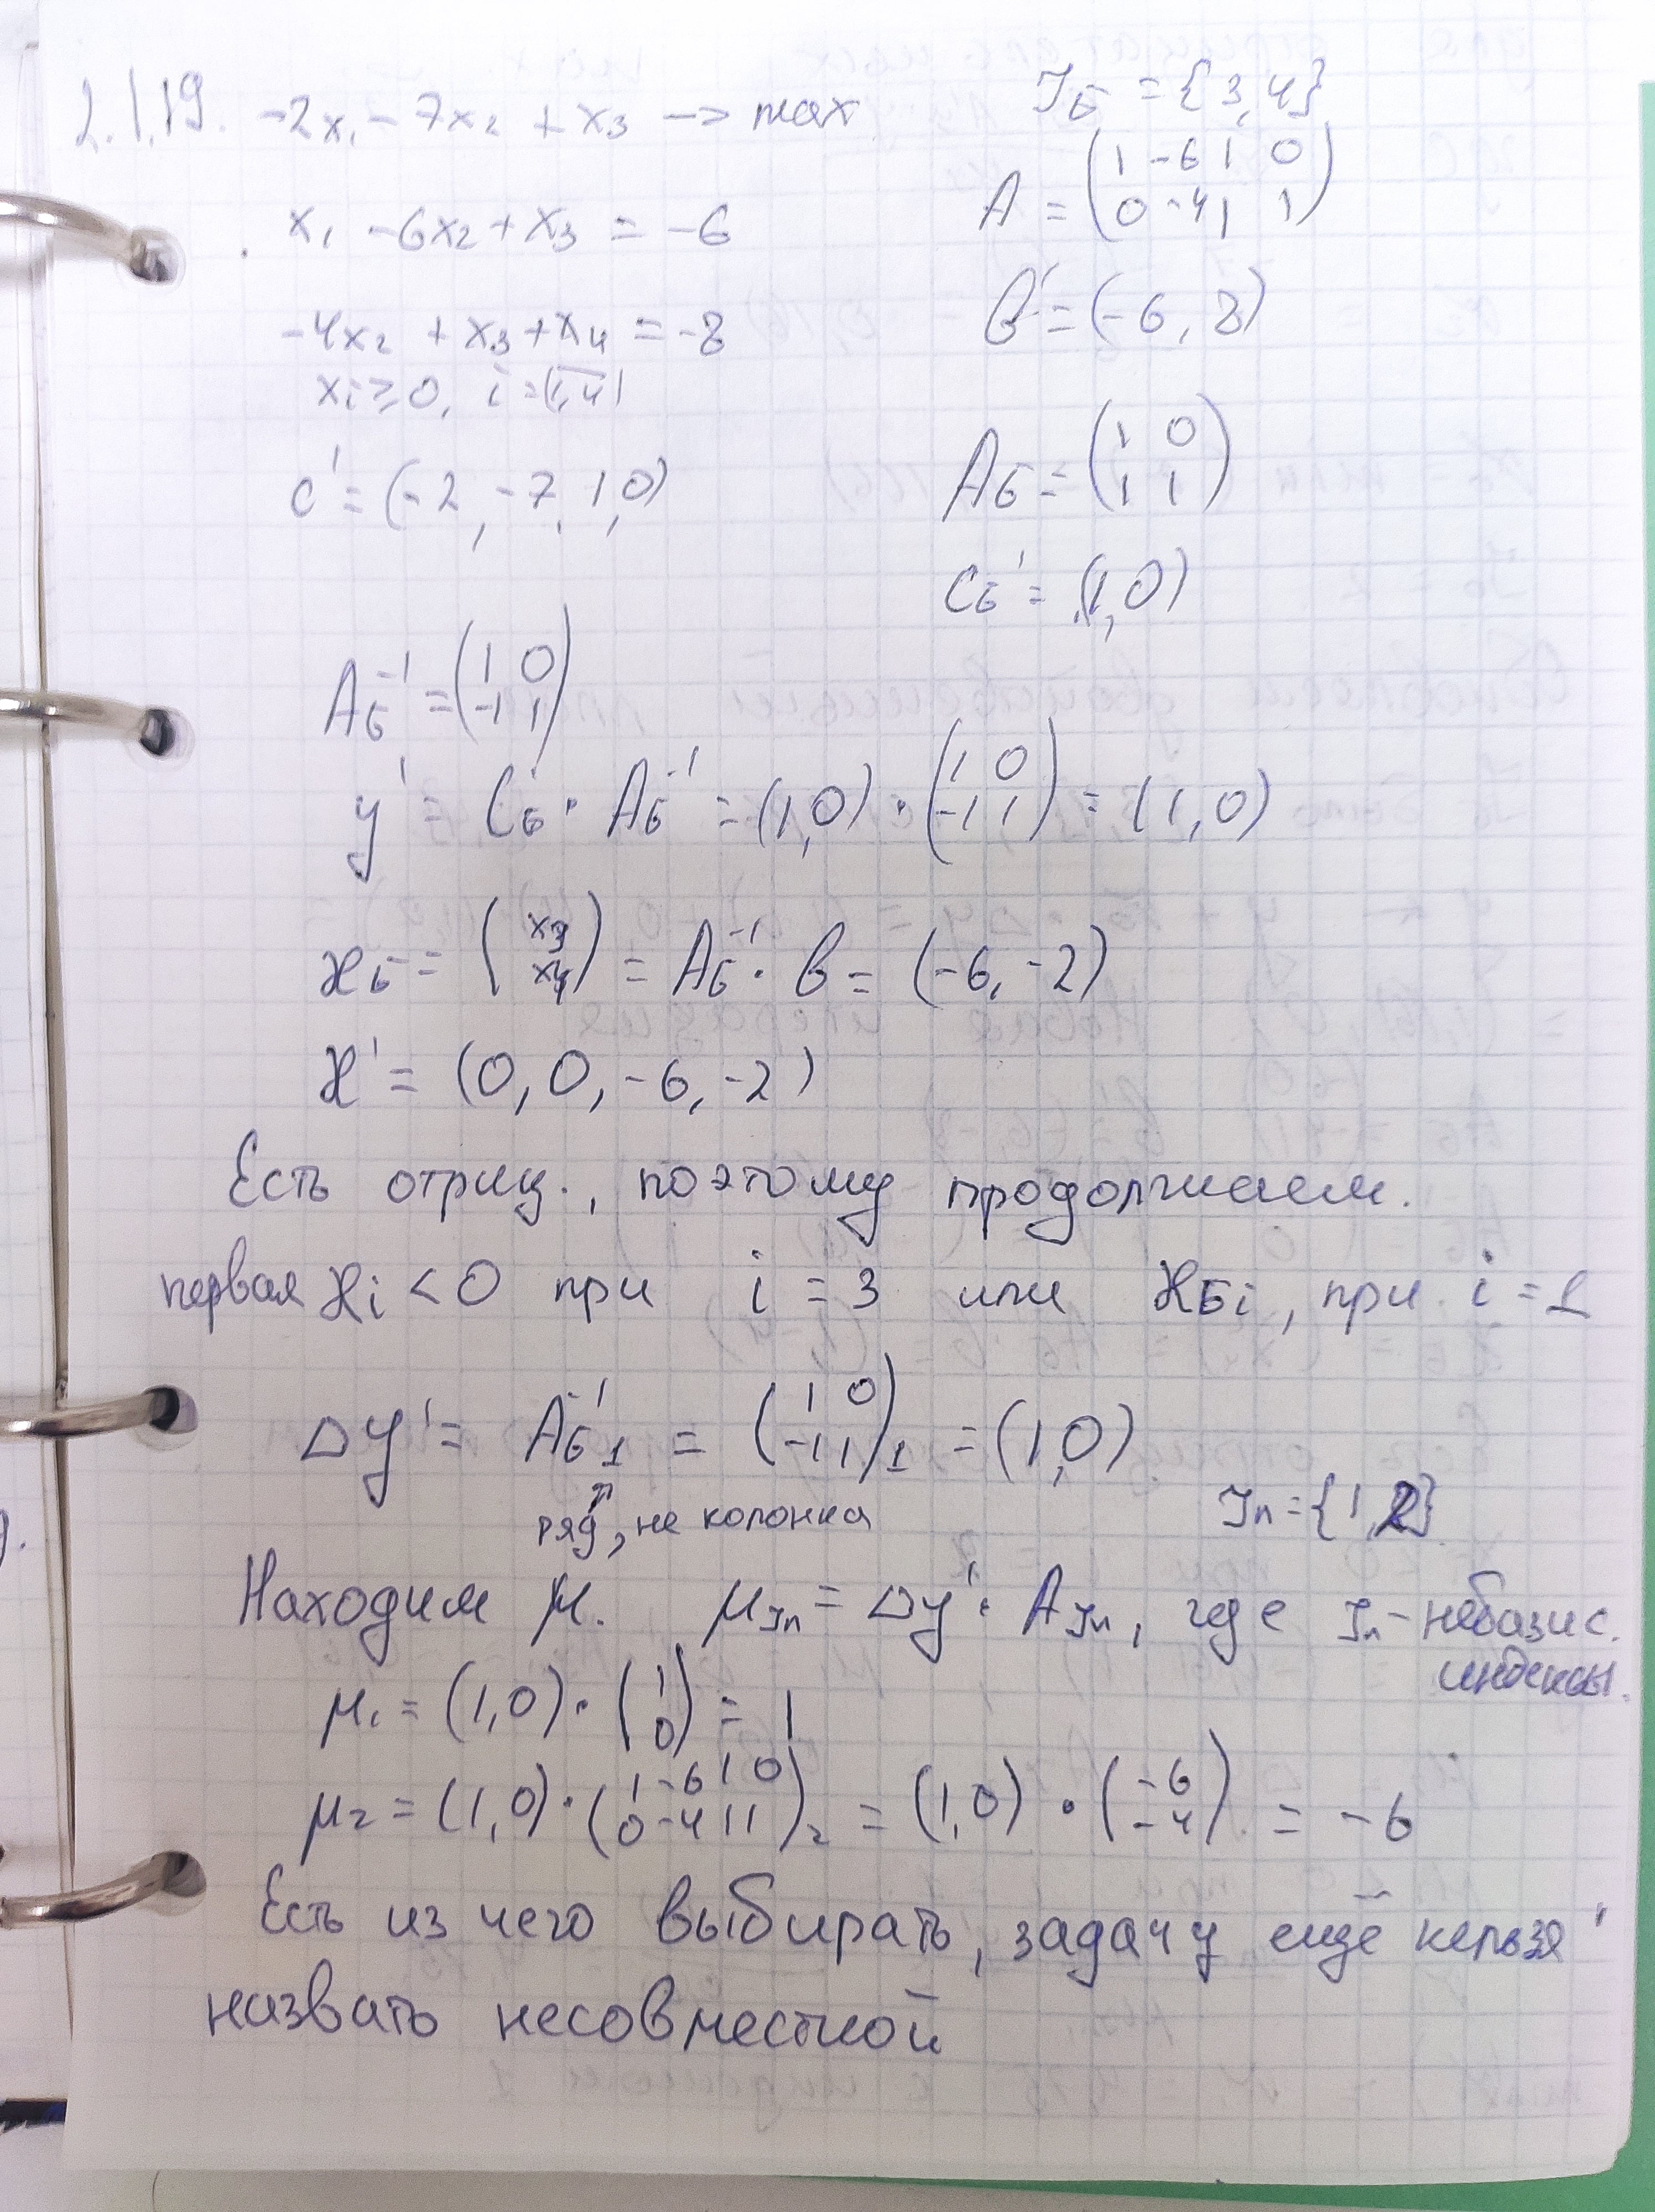 2.1.19. -2x₁ - 7x₂ + x₃ → max
x₁ - 6x₂ + x₃ = -6
-4x₂ + x₃ + x₄ = -8
xi ≥ 0, i = (1,4)
c' = (-2, -7, 1, 0)
Jб = {3,4}
A = (1 -6 1 0
0 -4 1 1)
b' = (-6, 8)
Aб = (1 0
1 1)
Cб' = (1, 0)
Aб⁻¹ = (1 0
-1 1)
y' = C'б · Aб⁻¹ = (1,0) · (1 0
-1 1) = (1, 0)
ϰб = (x₃
x₄) = Aб⁻¹ · b = (-6, -2)
ϰ' = (0, 0, -6, -2)
Есть отриц., поэтому продолжаем.
первая ϰi < 0 при i = 3 или ϰбi, при i = 1
Δy' = Aб⁻¹₁ = (1 0
-1 1)₁ = (1, 0)
↑
ряд, не колонка
Jн = {1, 2}
Находим μ. μJн = Δy' · AJн, где Jн - небазис.
индексы.
μ₁ = (1,0) · (1
0) = 1
μ₂ = (1,0) · (1 -6 1 0
0 -4 1 1)₂ = (1,0) · (-6
-4) = -6
Есть из чего выбирать, задачу ещё нельзя
назвать несовместной